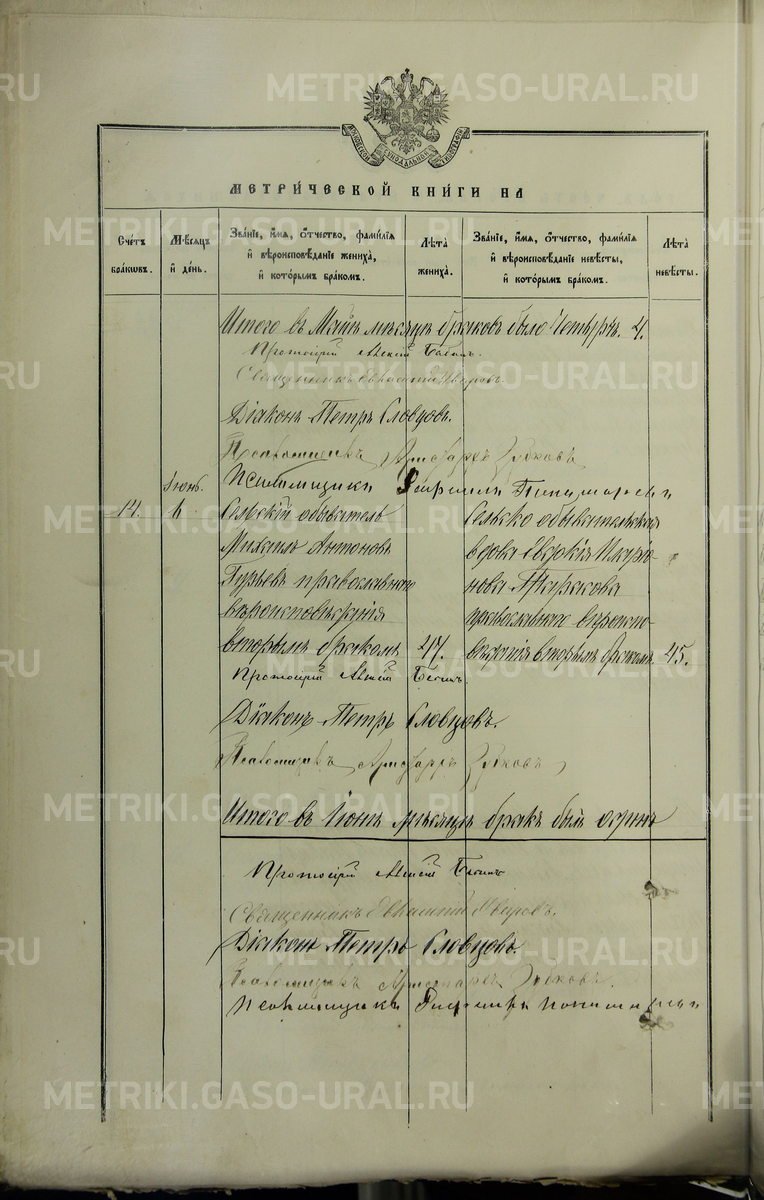 METRIKI.GASO-URAL.RU
МЕТРИ́ЧЕСКОЙ КНИ́ГИ НА
Сче́тъ бра́кωвъ.
Мѣ́сяцъ и҆ де́нь.
Зва́нїе, и҆́мя, ѻ҆́тчество, фами́лїя и҆ вѣроисповѣ́данїе жениха́, и҆ кото́рымъ бра́комъ.
Лѣ́та жениха́.
Зва́нїе, и҆́мя, ѻ҆́тчество, фами́лїя и҆ вѣроисповѣ́данїе невѣ́сты, и҆ кото́рымъ бра́комъ.
Лѣ́та невѣ́сты.
Итого въ Маѣ мѣсяцѣ браковъ было четыре. 4.
Протоіерей
Священникъ
Діаконъ Петръ Словцовъ.
Псаломщикъ Аристархъ Зубковъ
Псаломщикъ
14.
Іюнь.
6
Сельскій обыватель
Михаилъ Антоновъ
Гурьевъ православнаго
вѣроисповѣданія
вторымъ бракомъ
47.
Сельско обывательская
вдова Евдокія Иларіо-
нова
православнаго вѣроиспо-
вѣданія вторымъ бракомъ.
45.
Протоіерей
Діаконъ Петръ Словцовъ.
Псаломщикъ Аристархъ Зубковъ
Итого въ Іюнѣ мѣсяцѣ бракъ былъ одинъ
Протоіерей
Священникъ
Діаконъ Петръ Словцовъ.
Псаломщикъ Аристархъ Зубковъ.
Псаломщикъ